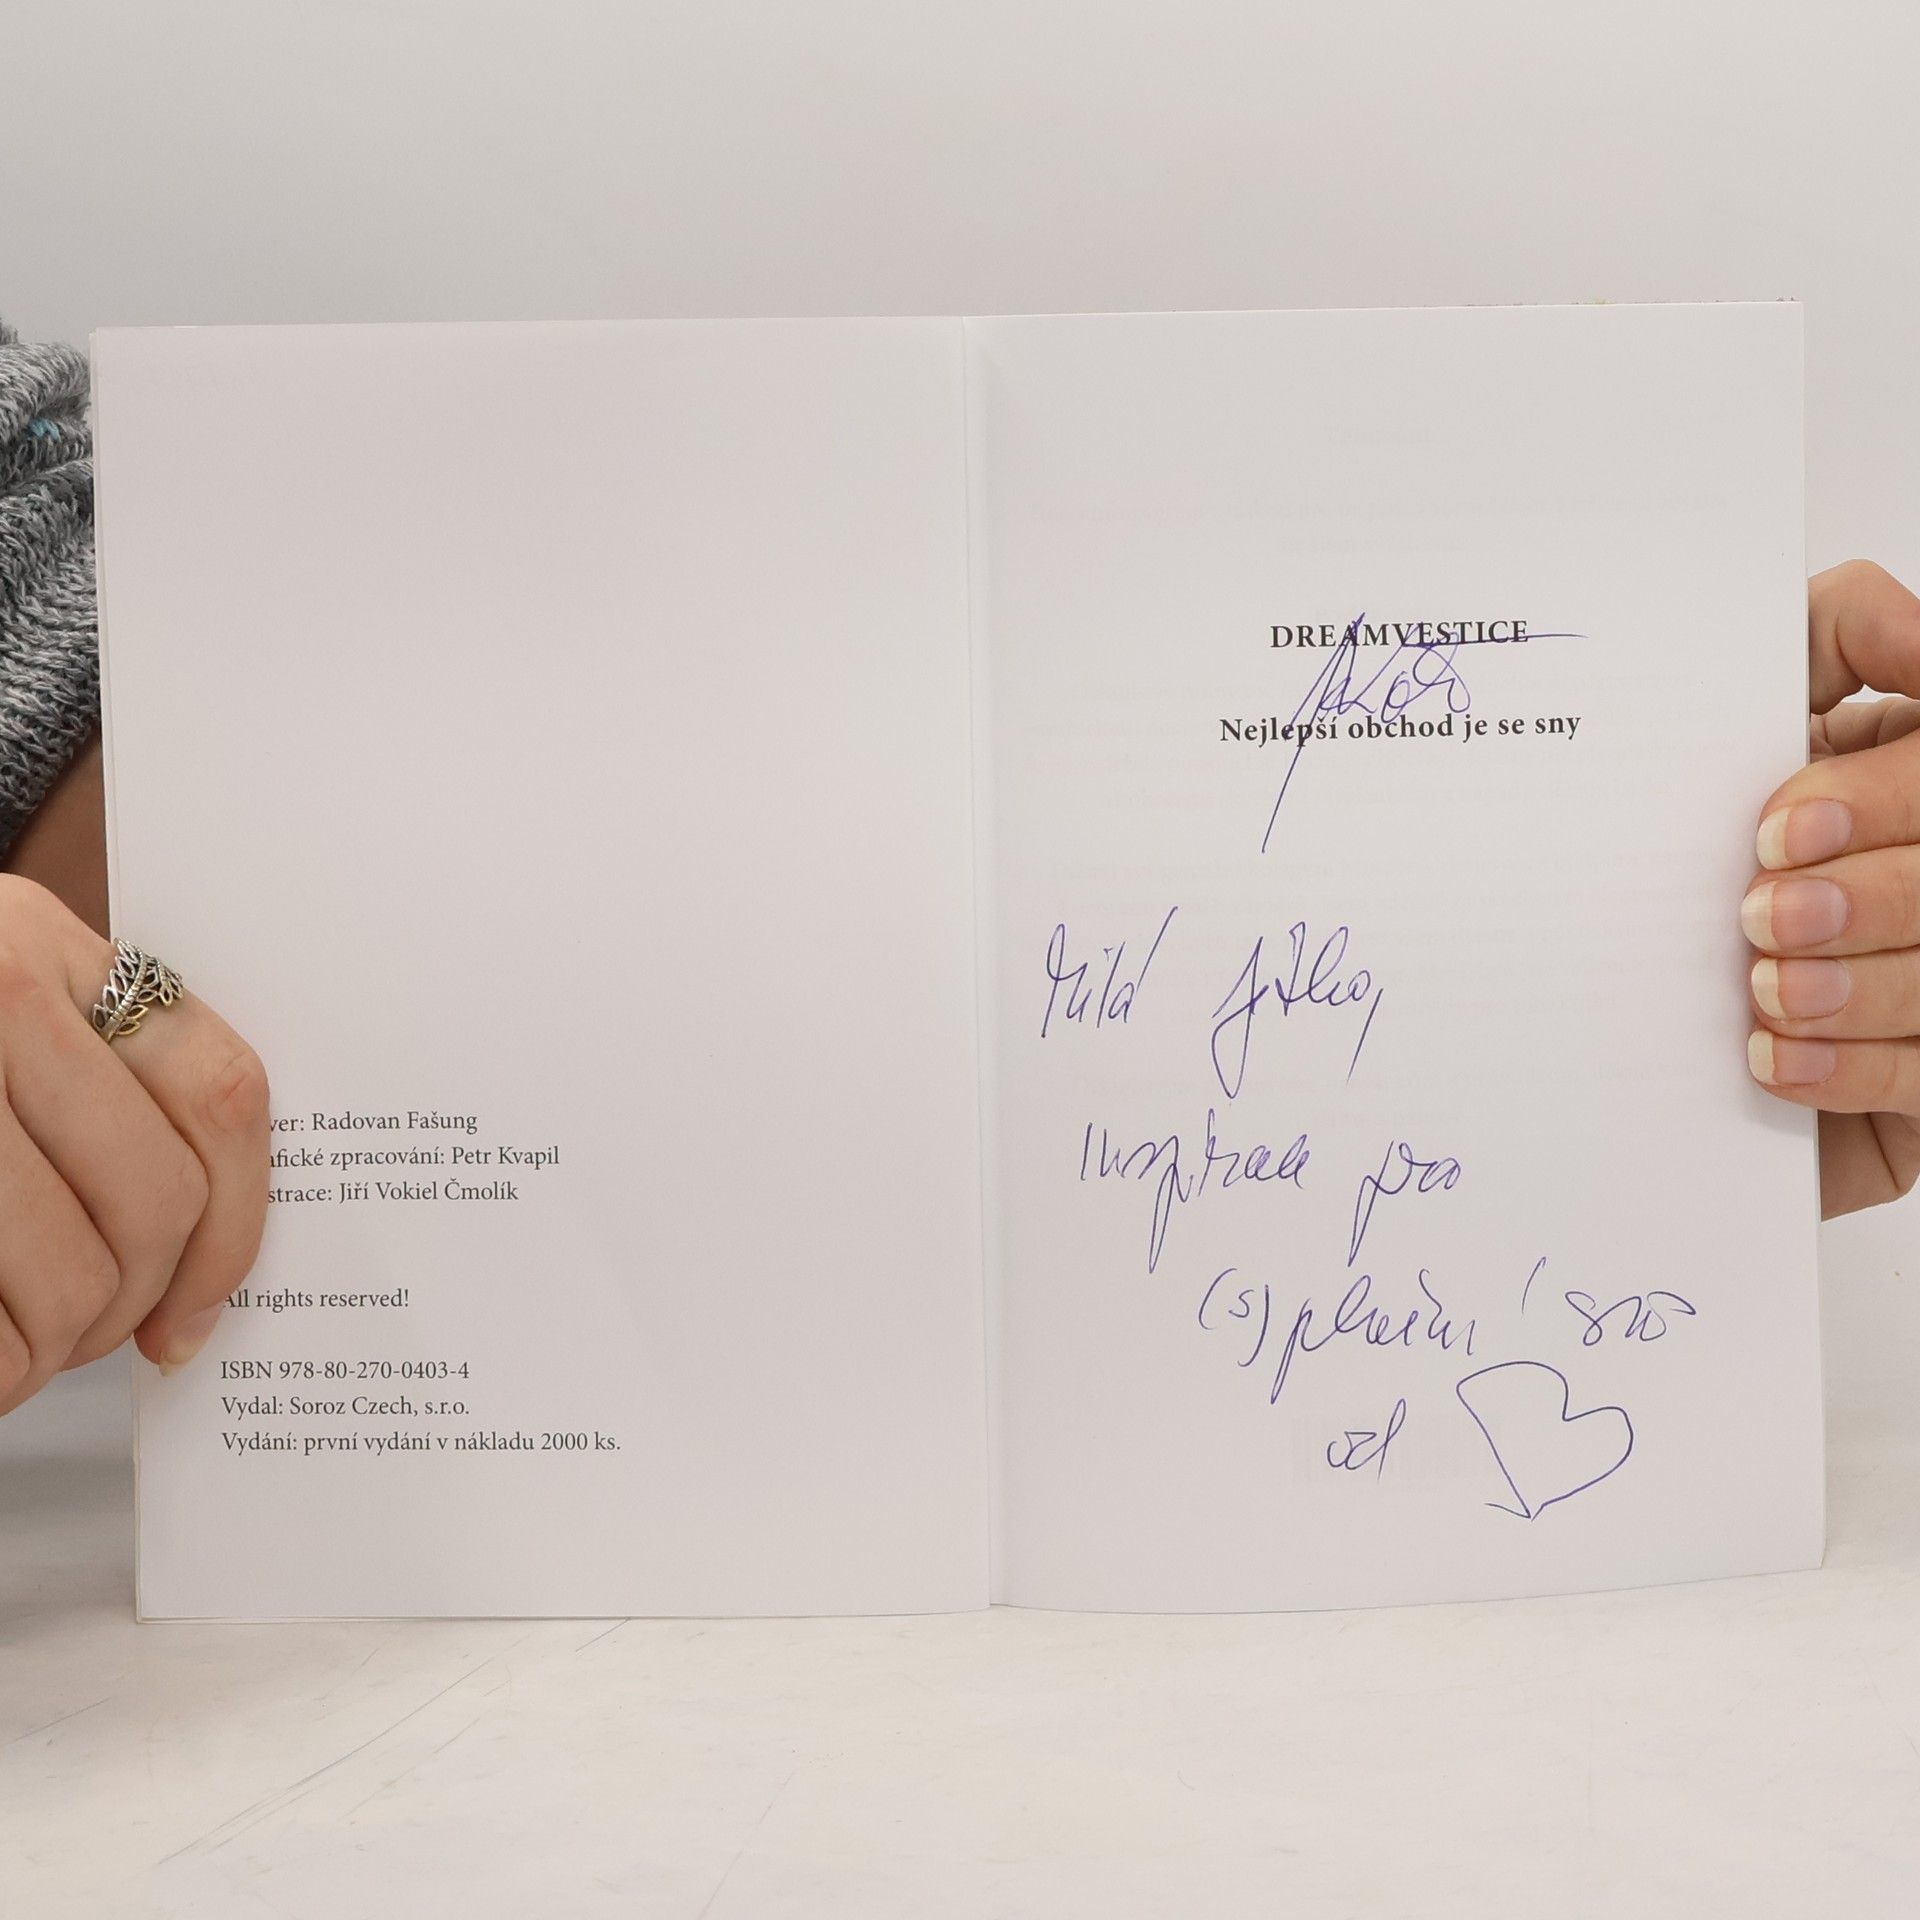 ver: Radovan Fašung
fické zpracování: Petr Kvapil
strace: Jiří Vokiel Čmolík
All rights reserved!
ISBN 978-80-270-0403-4
Vydal: Soroz Czech, s.r.o.
Vydání: první vydání v nákladu 2000 ks.
DREAMVESTICE
Nejlepší obchod je se sny
Milá Jitko,
Inspirace pro
(s)plnění snů
od